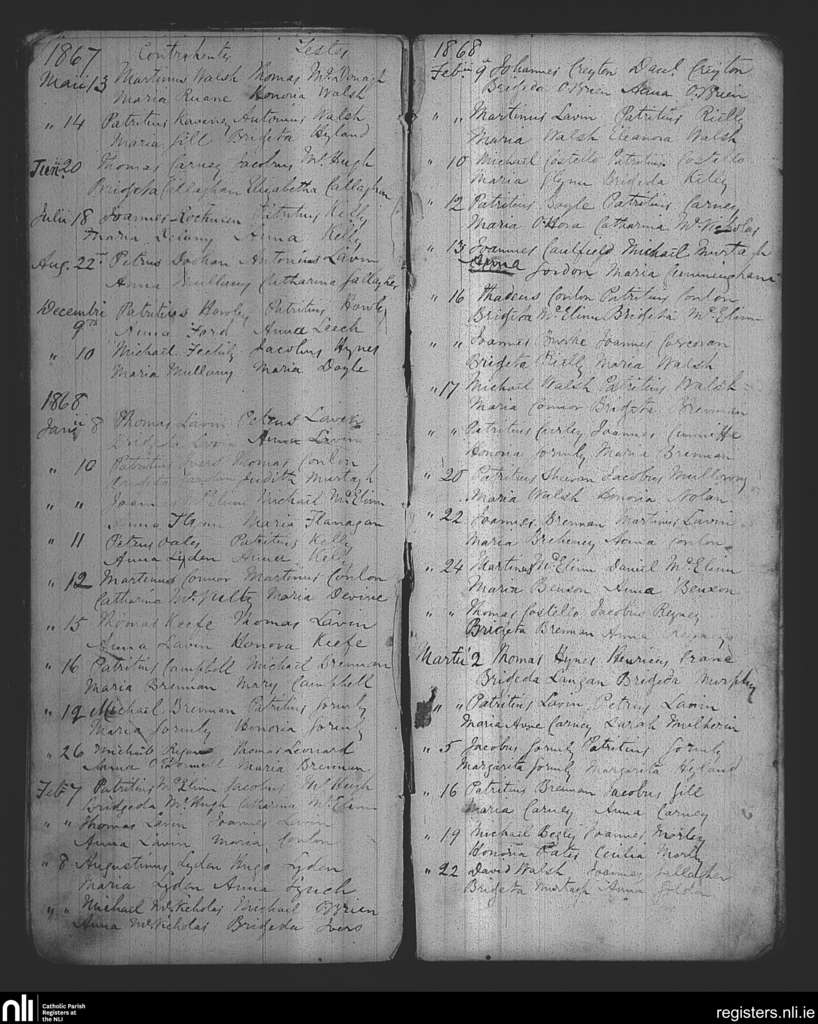 1867 Contrahentes Testes
Maii 13 Martinus Walsh Thomas McDonagh
Maria Ruane Honoria Walsh
" 14 Patritius Antonius Walsh
Maria Gill Brigeta Hyland
Junii 20 Thomas Carney Jacobus McHugh
Brigeta Callaghan Elizabetha Callaghan
Julii 18 Joannes Patritius Kelly
Maria Anna Kelly
Aug. 22 Petrus Antonius Lavin
Anna Mullowny Catharina Gallagher
Decembri 9th Patritius Howley Patritius Howley
Anna Ford Anna Leech
" 10 Michael Jacobus Hynes
Maria Mullowny Maria Doyle
1868
Janii 8 Thomas Lavin Petrus
Lavin Anna Lavin
" 10 Patritius Thomas Conlon
Judith Murtagh
" " Joannes McElinn Michael McElinn
Anna Flynn Maria Flanagan
" 11 Petrus Patritius Kelly
Anna Lyden Anna Kelly
" 12 Martinus Connor Martinus Conlon
Catharina McNulty Maria Devine
" 15 Thomas Keefe Thomas Lavin
Anna Lavin Honora Keefe
" 16 Patritius Campbell Michael Brennan
Maria Brennan Mary Campbell
" 19 Michael Brennan Patritius Gormly
Maria Gormly Honoria Gormly
" 26 Michael Ryan Thomas Leonard
Anna O'Donnell Maria Brennan
Feb 7 Patritius McElinn Jacobus McHugh
Bridgeda McHugh Catharina McElinn
" " Thomas Lavin Joannes Lavin
Anna Lavin Maria Conlon
" 8 Augustinus Lyden Hugo Lyden
Maria Lyden Anna Lynch
" " Michael McNicholas Michael O'Brien
Anna McNicholas Brigeda Ivers
1868
Febii 9 Johannes Creyton Danl Creyton
Brigeda O'Brien Anna O'Brien
" " Martinus Lavin Patritius Rielly
Maria Walsh Eleanora Walsh
" 10 Michael Costello Patritius Costello
Maria Glynn Brigeda Kelly
" 12 Patritius Doyle Patritius Carney
Maria O'Hora Catharina McNicholas
" 13 Joannes Caulfield Michael Murtagh
Anna Jordon Maria Cunningham
" 16 Thadeus Conlon Patritius Conlon
Brigeda McElinn Brigeta McElinn
" " Joannes Joannes Corcoran
Brigeta Rielly Maria Walsh
" 17 Michael Walsh Patritius Walsh
Maria Connor Brigeta Brennan
" " Patritius Curley Joannes Cunniffe
Honora Gormly Maria Brennan
" 20 Patritius Jacobus Mullowny
Maria Walsh Honoria Nolan
" 22 Joannes Brennan Martinus Lavin
Maria Breheney Conlon
" 24 Martinus McElinn Daniel McElinn
Maria Benson Anna Benson
" " Thomas Costello Jacobus Regney
Brigeta Brennan Anna
Martii 2 Thomas Hynes Henricus Crane
Brigeda Langan Brigeda Murphy
" " Patritius Lavin Petrus Lavin
Maria Anne Carney Sarah Mulherin
" 5 Jacobus Gormly Patritius Gormly
Margarita Gormly Margarita Hyland
" 16 Patritius Brennan Jacobus Gill
Maria Carney Anna Carney
" 19 Michael Begley Joannes Morley
Honoria Cecilia
" 22 David Walsh Joannes Gallagher
Brigeta Murtagh Anna
nli
Catholic Parish
Registers at
the NLI
registers.nli.ie